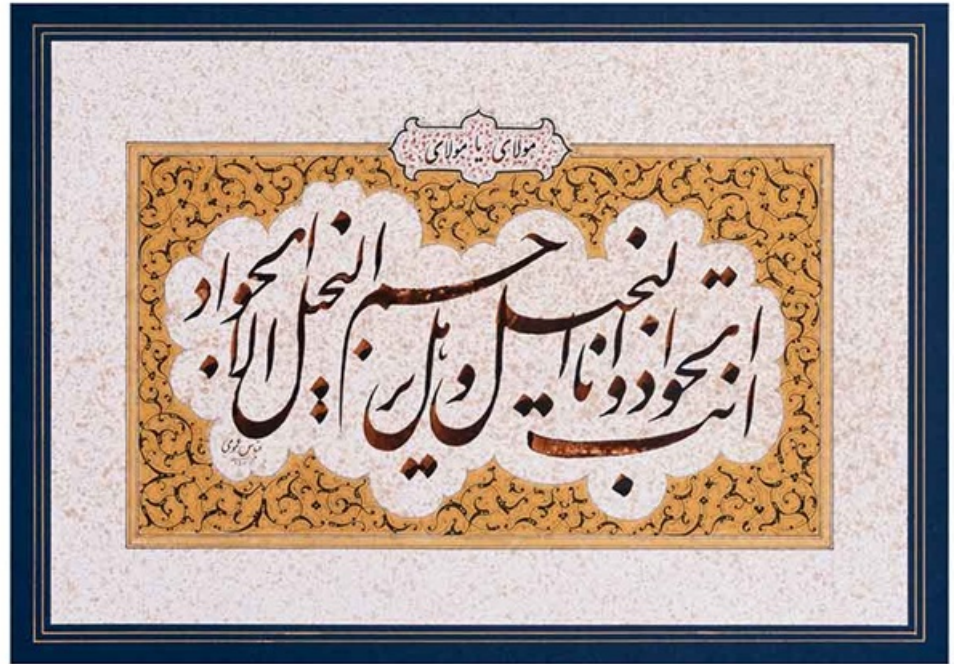 مولای یا مولای
انت الجواد و انا البخیل و هل یرحم البخیل الا الجواد